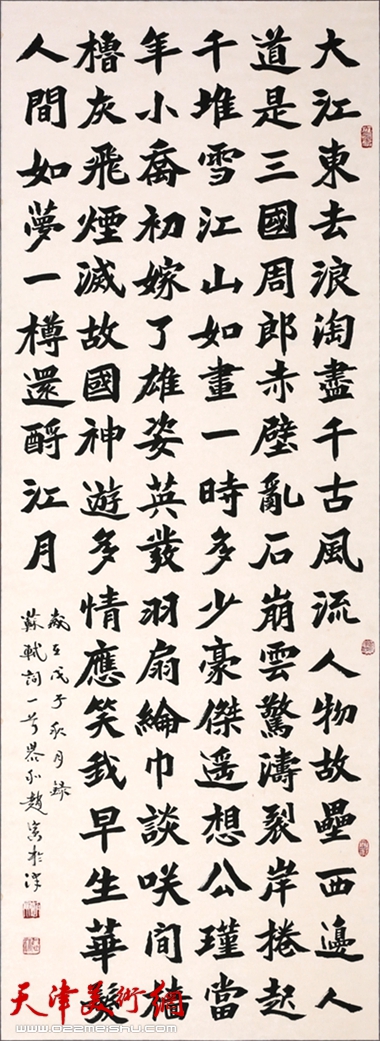 大江東去浪淘盡千古風流人物故壘西邊人
道是三國周郎赤壁亂石崩雲驚濤裂岸捲起
千堆雪江山如畫一時多少豪傑遥想公瑾當
年小喬初嫁了雄姿英發羽扇綸巾談咲間檣
櫓灰飛煙滅故國神遊多情應笑我早生華髮
人間如夢一樽還酹江月
歲在戊子秋月錄
蘇軾詞一首
天津美術網
www.022meishu.com